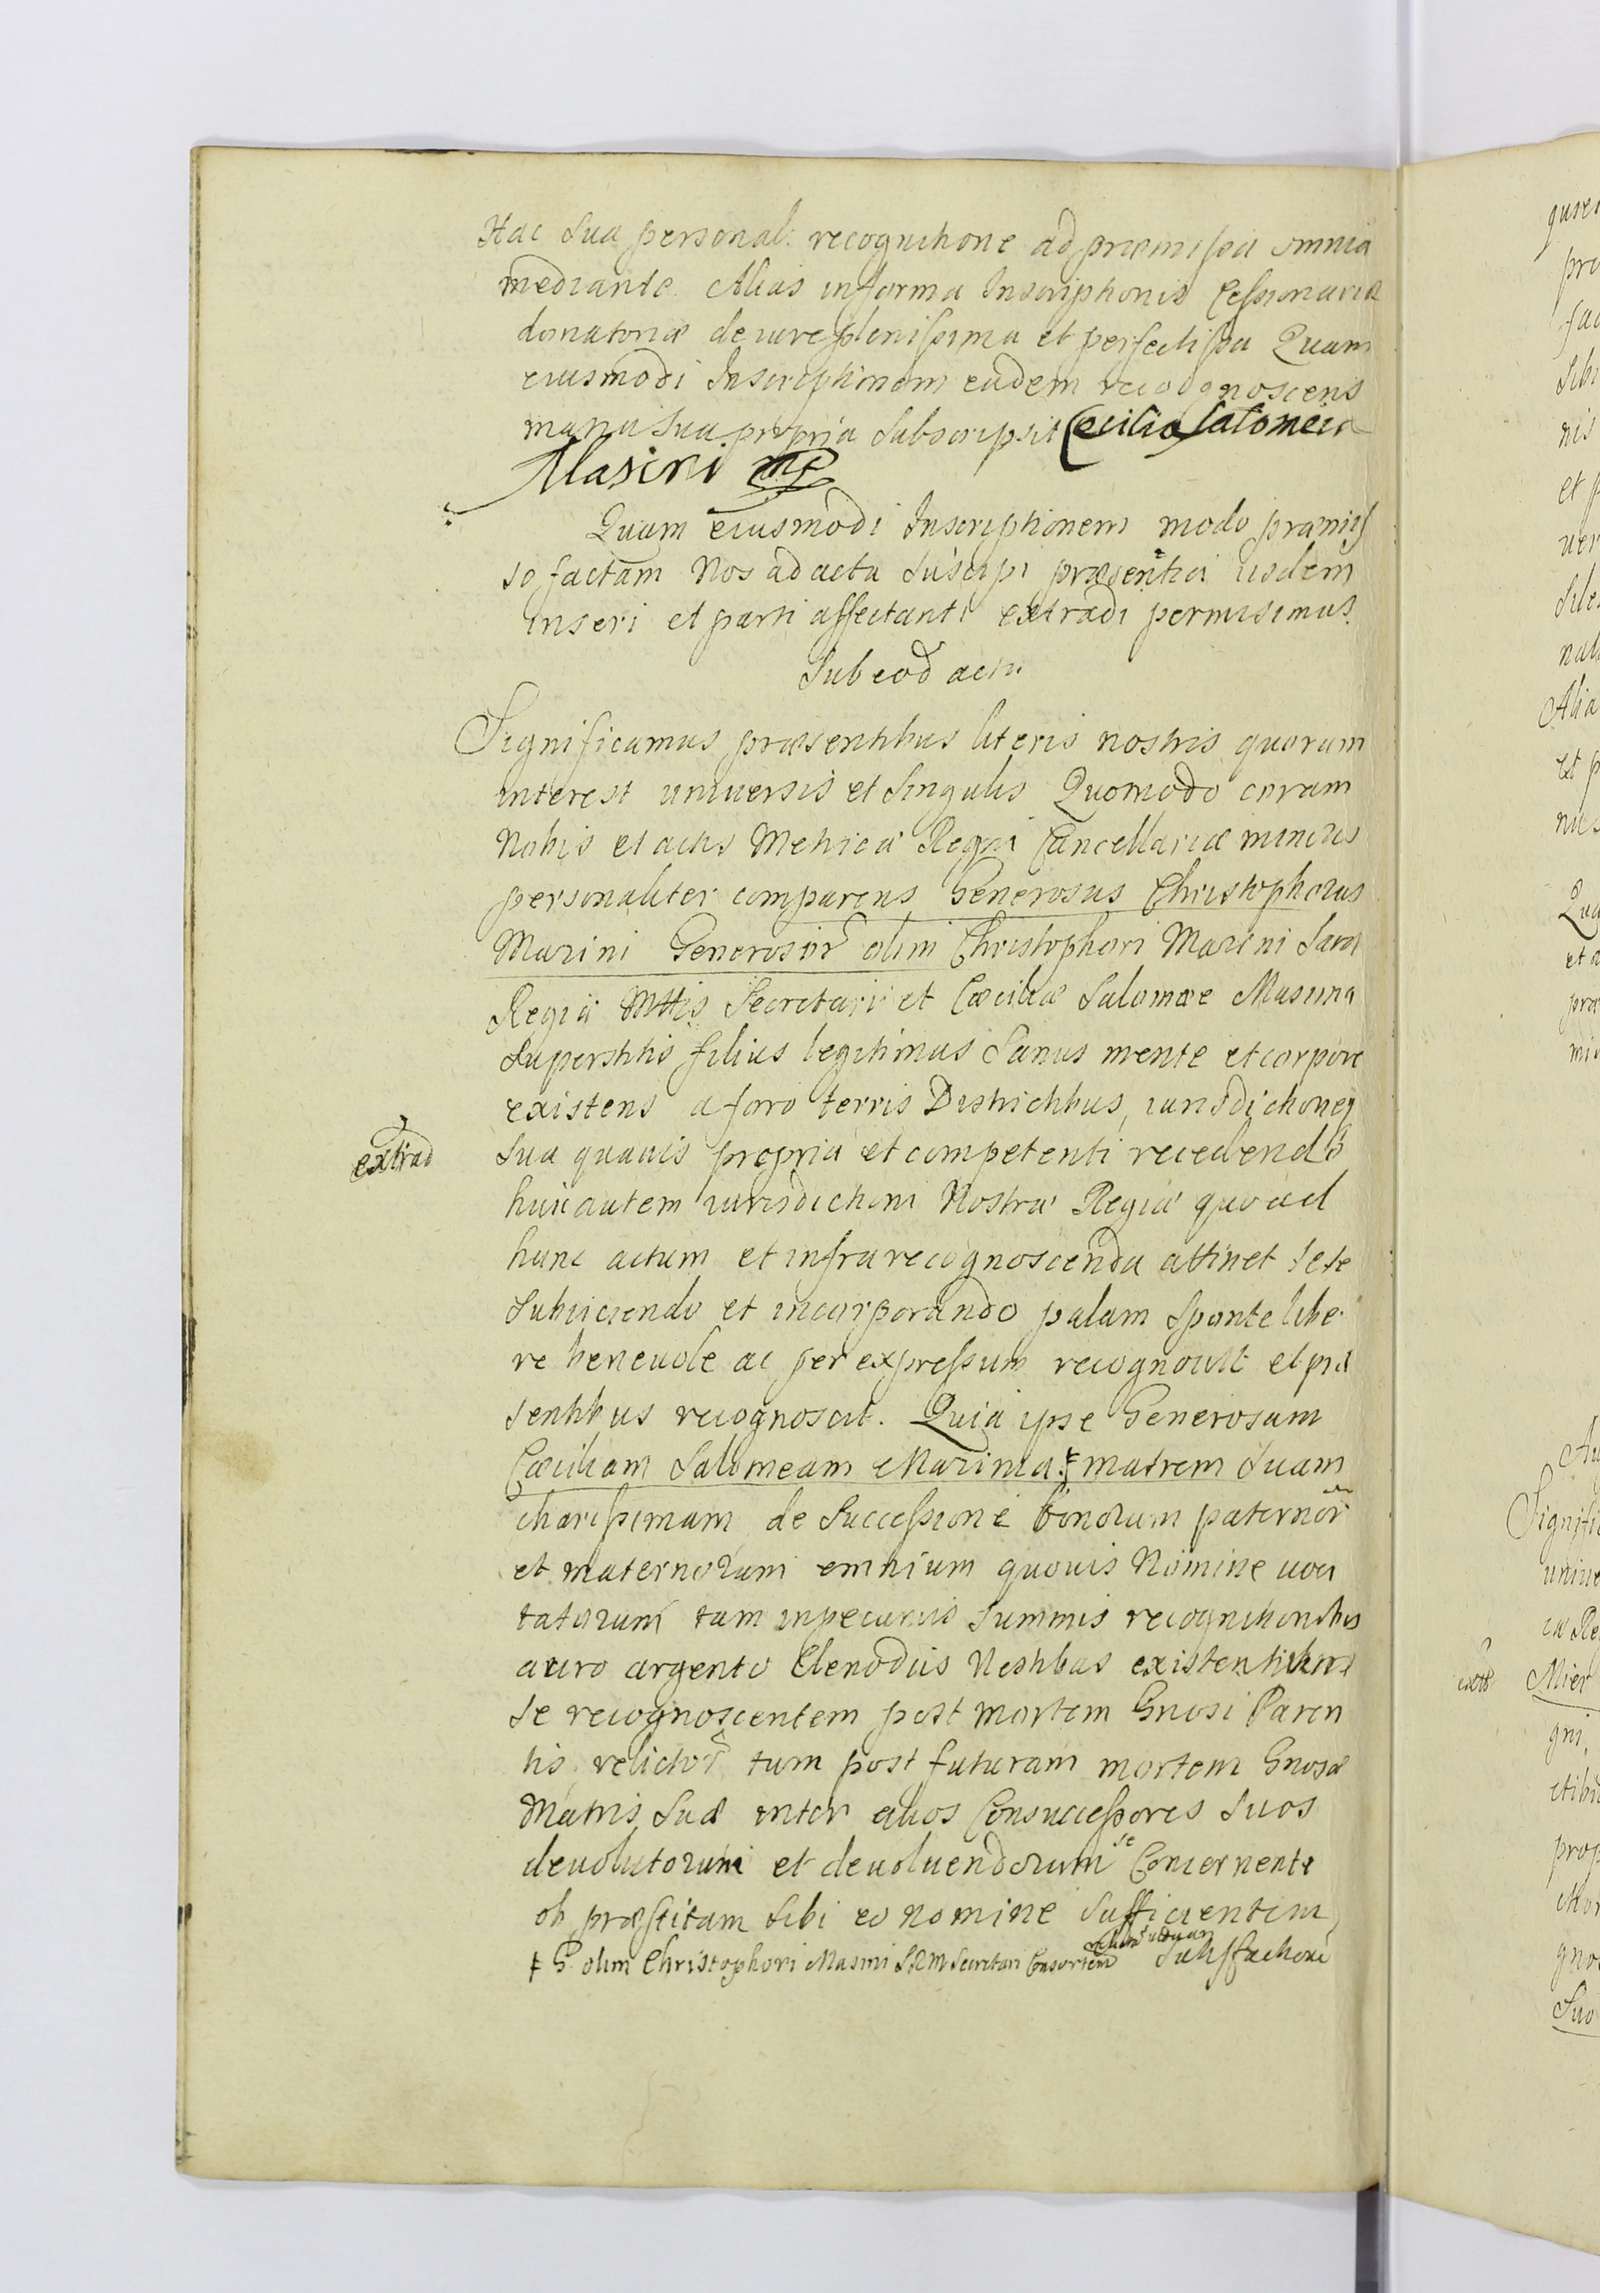 Hac sua personal: recognitione ad præmissa omnia
mediante Alias in forma Inscriptionis Cessionariæ
donatoriæ de iure plenissima et perfectissa Quam
eiusmodi Inscriptionem eadem recognoscens
manu sua propria subscripsit Cecilia Salomeia
Masini mp
Quam eiusmodi Inscriptionem modo præmis
so factam Nos ad acta suscipi præsentia iisdem
inseri et parti affectanti extradi permisimus.
Sub eod actu
Significamus præsentibus literis nostris quorum
interest universis et singulis Quomodo coram
Nobis et actis Metricæ Regni Cancellariæ minoris
personaliter comparens Generosus Christophorus
Marini Generosor olim Christophori Marini Sacræ
Regiæ Mttis Secretarii et Cæciliæ Salomæe Masinia
superstitis filius legitimus sanus mente et corpore
existens a foro terris Districtibus, iurisdictioneq
extrad
sua quavis propria et competenti recedendo
huic autem iurisdictioni Nostræ Regiæ quo ad
hunc actum et infra recognoscenda attinet sese
subiiciendo et incorporando palam sponte libe
re benevole ac per expressum recognovit et præ
sentibus recognoscit. Quia ipse Generosam
Cæciliam Salomeam Marinia ǂ matrem suam
charissimam de successione bonorum paternor
et maternorum omnium quovis Nomine voci
tatorum tam in pecuniis summis recognitionibus
auro argento Clenodiis Vestibus existentibus
se recognoscentem post mortem Gnosi Paren
tis relictor tum post futuram mortem Gnosæ
Matris suæ inter alios Consuccessores suos
devolutorum et devolvendorum se Concernente
ob præstitam sibi eo nomine sufficientem
ǂ G. olim Christophori Masini S R M Secretarii Consortem
satisfactione